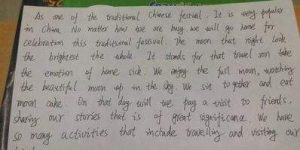 As one of the traditional Chinese festival. It is very popular
in China. No matter how we are busy we will go home for
celebration this traditional fastival. The moon that night look
the brightest the whole. It stands for that travel son take
the emotion of home sick. We enjoy the full moon, watching
the beautiful moon up in the sky. We sit together and eat
moon cake. On that day will we pay a visit to friends,
sharing our stories that is of great significance. We have
so many activities that include travelling and visiting our